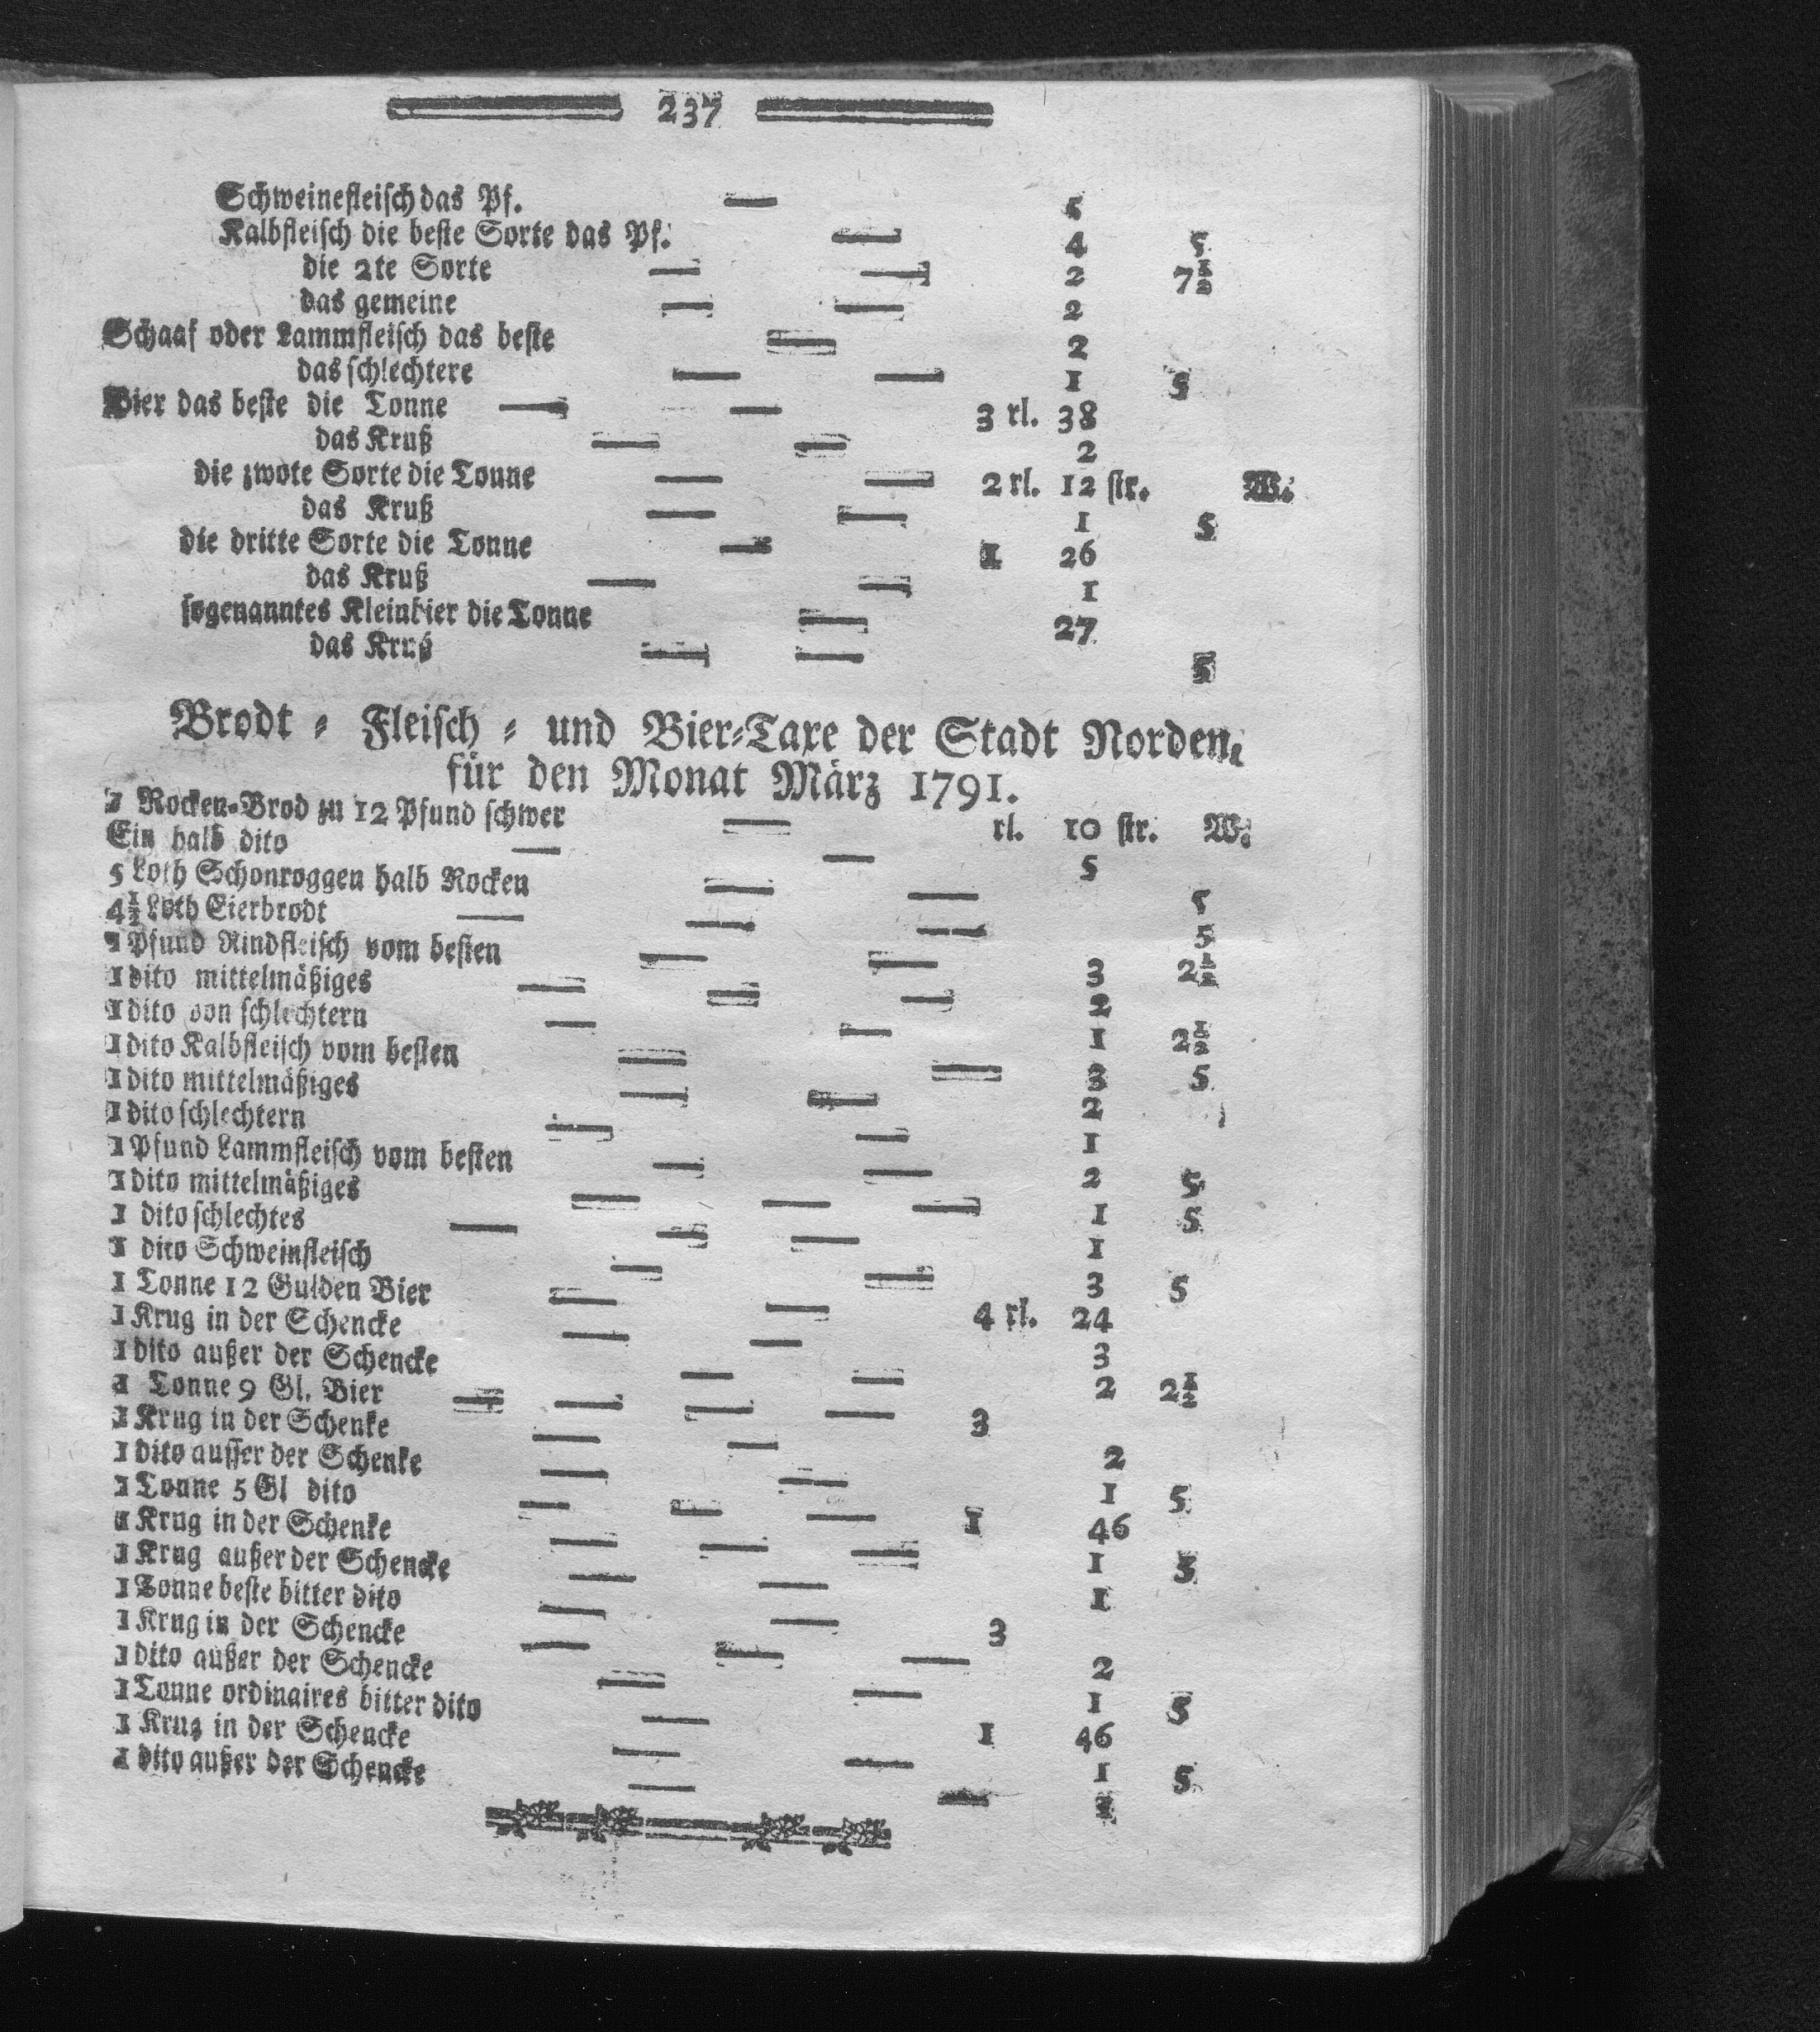 237
Schweinefleisch das Pf. — 5
Kalbfleisch die beste Sorte das Pf. — 4 5
die 2te Sorte — — 2 7½
das gemeine — — 2
Schaaf oder Lammfleisch das beste — 2
das schlechtere — — 1 5
Bier das beste die Tonne — — 3 rl. 38
das Kruß — — 2
die zwote Sorte die Tonne — — 2 rl. 12 str. W.
das Kruß — — 1 5
die dritte Sorte die Tonne — 1 26
das Kruß — — 1
sogenanntes Kleinbier die Tonne — 27
das Kruß — — 5
Brodt- Fleisch- und Bier-Taxe der Stadt Norden,
für den Monat März 1791.
1 Rocken-Brod zu 12 Pfund schwer — rl. 10 str. W.
Ein halb dito — — 5
5 Loth Schonroggen halb Rocken — — 5
4½ Loth Eierbrodt — — — 5
1 Pfund Rindfleisch vom besten — — 3 2½
1 dito mittelmäßiges — — — 2
1 dito von schlechtern — — 1 2½
1 dito Kalbfleisch vom besten — — 3 5
1 dito mittelmäßiges — — 2
1 dito schlechtern — — 1
1 Pfund Lammfleisch vom besten — — 2 5
1 dito mittelmäßiges — — — 1 5
1 dito schlechtes — — — 1
1 dito Schweinfleisch — — 3 5
1 Tonne 12 Gulden Bier — — 4 rl. 24
1 Krug in der Schencke — — 3
1 dito außer der Schencke — — 2 2½
1 Tonne 9 Gl. Bier — — — — 3
1 Krug in der Schenke — — 2
1 dito ausser der Schenke — — 1 5
1 Tonne 5 Gl dito — — — 1 46
1 Krug in der Schenke — — — 1 5
1 Krug außer der Schencke — — 1
1 Tonne beste bitter dito — — 3
1 Krug in der Schencke — — — 2
1 dito außer der Schencke — — 1 5
1 Tonne ordinaires bitter dito — 1 46
1 Krug in der Schencke — — 1 5
1 dito außer der Schencke — —